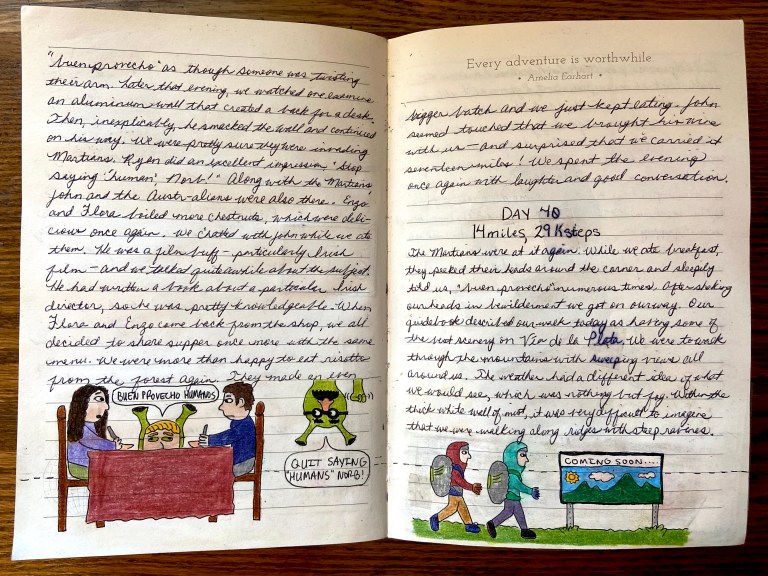 "buen provecho" as though someone was twisting
their arm. Later that evening, we watched one examine
an aluminum wall that created a back for a desk.
Then, inexplicably, he smacked the wall and continued
on his way. We were pretty sure they were invading
Martians. Ryon did an excellent impression, "Stop
saying 'human', Norb!" Along with the Martians
John and the Austr-alians were also there. Enzo
and Flora boiled more chestnuts, which were deli-
cious once again. We chatted with John while we ate
them. He was a film buff – particularly Irish
film – and we talked quite awhile about the subject.
He had written a book about a particular Irish
director, so he was pretty knowledgeable. When
Flora and Enzo came back from the shop, we all
decided to share supper once more with the same
menu. We were more than happy to eat risotto
from the forest again. They made an even
BUEN PROVECHO HUMANOS
QUIT SAYING
"HUMANS" NORB!
Every adventure is worthwhile
• Amelia Earhart •
bigger batch and we just kept eating. John
seemed touched that we brought his wine
with us – and surprised that we carried it
seventeen miles! We spent the evening
once again with laughter and good conversation.
DAY 40
14 miles, 29K steps
The Martians were at it again. While we ate breakfast,
they peeked their heads around the corner and sleepily
told us, "buen provecho" numerous times. After shaking
our heads in bewilderment we got on our way. Our
guidebook described our walk today as having some of
the best scenery on Via de la Plata. We were to walk
through the mountains with sweeping views all
around us. The weather had a different idea of what
we would see, which was nothing but fog. Within the
thick white wall of mist, it was very difficult to imagine
that we were walking along ridges with steep ravines.
COMING SOON....